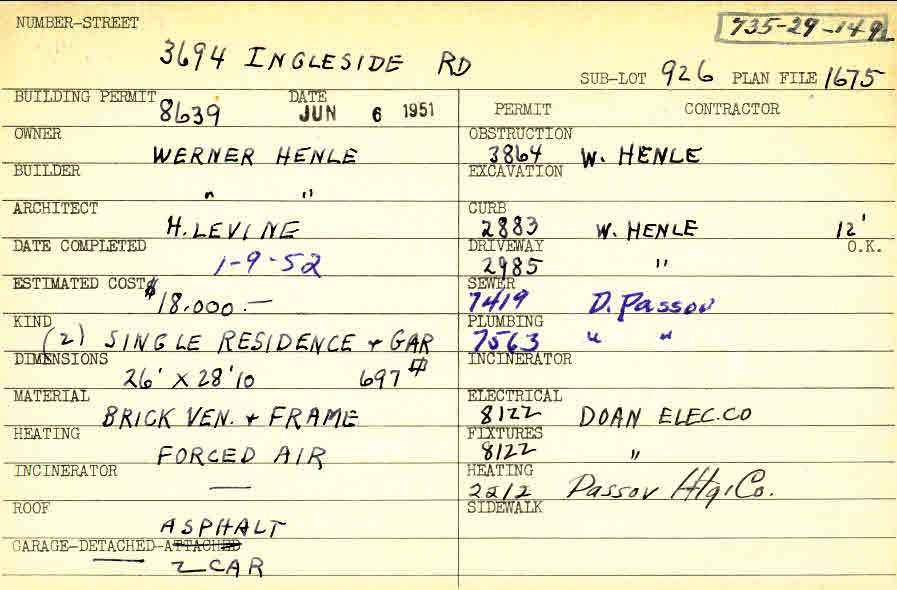 NUMBER-STREET
735-29-149
3694 INGLESIDE RD
SUB-LOT 926 PLAN FILE 1675
BUILDING PERMIT 8639 DATE JUN 6 1951
OWNER
WERNER HENLE
BUILDER
" "
ARCHITECT
H. LEVINE
DATE COMPLETED
1-9-52
ESTIMATED COST $18,000.—
KIND
(2) SINGLE RESIDENCE + GAR
DIMENSIONS
26' X 28'10 697
MATERIAL
BRICK VEN. + FRAME
HEATING
FORCED AIR
INCINERATOR
—
ROOF
ASPHALT
GARAGE-DETACHED-ATTACHED
2 CAR
PERMIT CONTRACTOR
OBSTRUCTION
3864 W. HENLE
EXCAVATION
CURB
2883 W. HENLE 12'
DRIVEWAY O.K.
2985 "
SEWER
7419 D. Passov
PLUMBING
7563 " "
INCINERATOR
ELECTRICAL
8122 DOAN ELEC. CO
FIXTURES
8122 "
HEATING
2212 Passov Htg. Co.
SIDEWALK